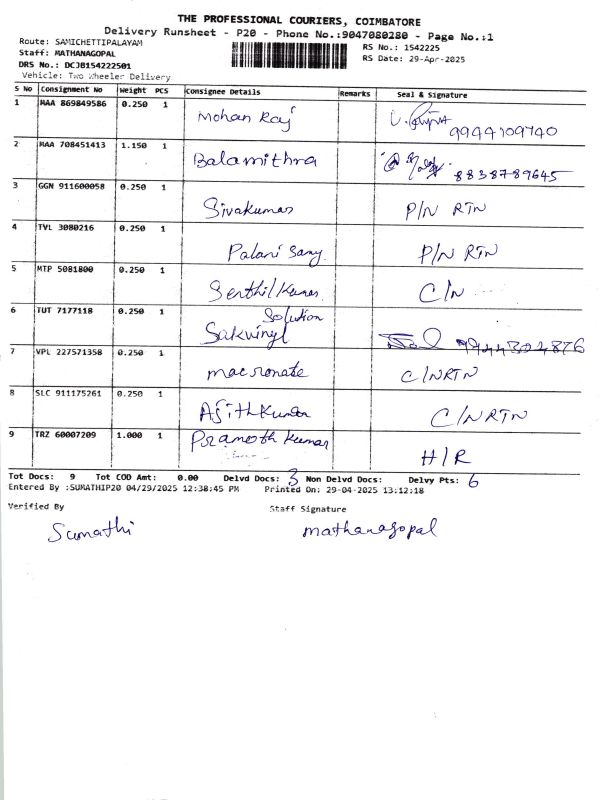 THE PROFESSIONAL COURIERS, COIMBATORE
Delivery Runsheet - P20 - Phone No.:9047080280 - Page No.:1
Route: SAMICHETTIPALAYAM
RS No.: 1542225
Staff: MATHANAGOPAL
RS Date: 29-Apr-2025
DRS No.: DCJB154222501
Vehicle: Two Wheeler Delivery
S No Consignment No Weight PCS Consignee Details Remarks Seal & Signature
1 MAA 869849586 0.250 1 Mohan Raj 9944109740
2 MAA 708451413 1.150 1 Balamithra 8838789645
3 GGN 911600058 0.250 1 Sivakumar P/N RTN
4 TVL 3080216 0.250 1 Palani Samy P/N RTN
5 MTP 5081800 0.250 1 Senthil Kumar C/N
6 TUT 7177118 0.250 1 Sakwinyl Solution 9944302876
7 VPL 227571358 0.250 1 macronate C/N RTN
8 SLC 911175261 0.250 1 Ajith Kumar C/N RTN
9 TRZ 60007209 1.000 1 Pramoth Kumar H/R
Tot Docs: 9 Tot COD Amt: 0.00 Delvd Docs: 3 Non Delvd Docs: Delvy Pts: 6
Entered By :SUMATHIP20 04/29/2025 12:38:45 PM Printed On: 29-04-2025 13:12:18
Verified By Staff Signature
Sumathi mathanagopal